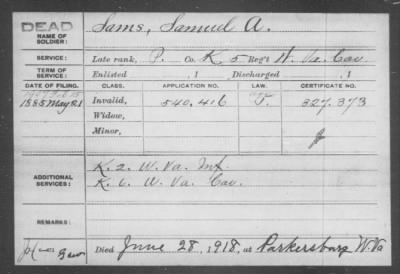 DEAD
NAME OF SOLDIER: Sams, Samuel A.
SERVICE: Late rank, P. Co. K 5 Reg't W. Va. Cav.
TERM OF SERVICE: Enlisted , 1 Discharged , 1
DATE OF FILING. CLASS. APPLICATION NO. LAW. CERTIFICATE NO.
1885 May 21 Invalid, 540.416 327.373
Widow,
Minor,
ADDITIONAL SERVICES: K. 2. W. Va. Inf.
K. 6. W. Va. Cav.
REMARKS:
Died June 28, 1918, at Parkersburg W. Va